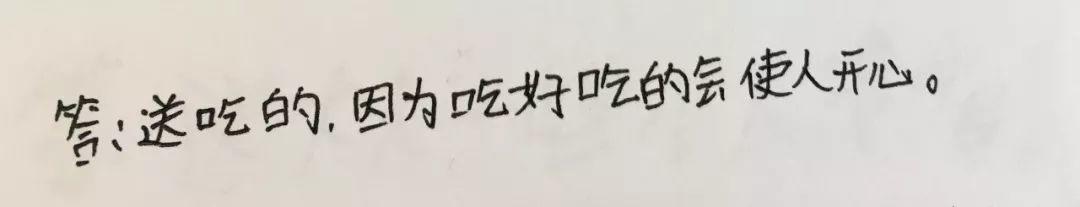 答:送吃的,因为吃好吃的会使人开心。